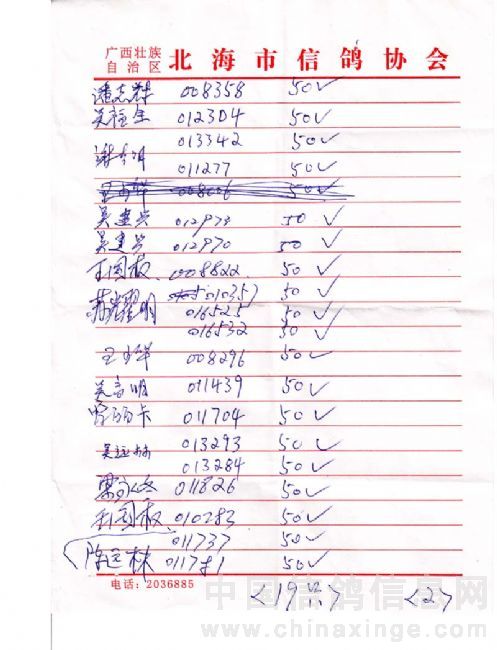 广西壮族
自治区 北海市信鸽协会
潘志辉 008358 50✓
吴 012304 50✓
013342 50✓
谢 011277 50✓
50✓
吴建兴 012973 50 ✓
吴建兴 012970 50 ✓
王国板 008822 50✓
010357 50✓
苏耀明 016525 50✓
016532 50✓
王 祥 008296 50✓
吴 明 011439 50✓
卡 011704 50✓
吴运林 013293 50✓
013284 50✓
011826 50✓
国板 010283 50✓
011737 50✓
陈运林 50✓
电话：2036885
<19 > <2>
中国信鸽信息网
www.chinaxinge.com